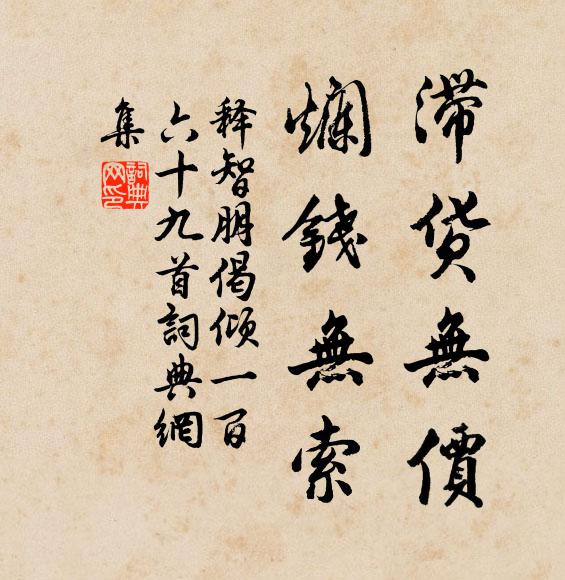 滞货無價
爛錢無索
释智朋偈倾一百
六十九首詞典網
集
詞典
网印